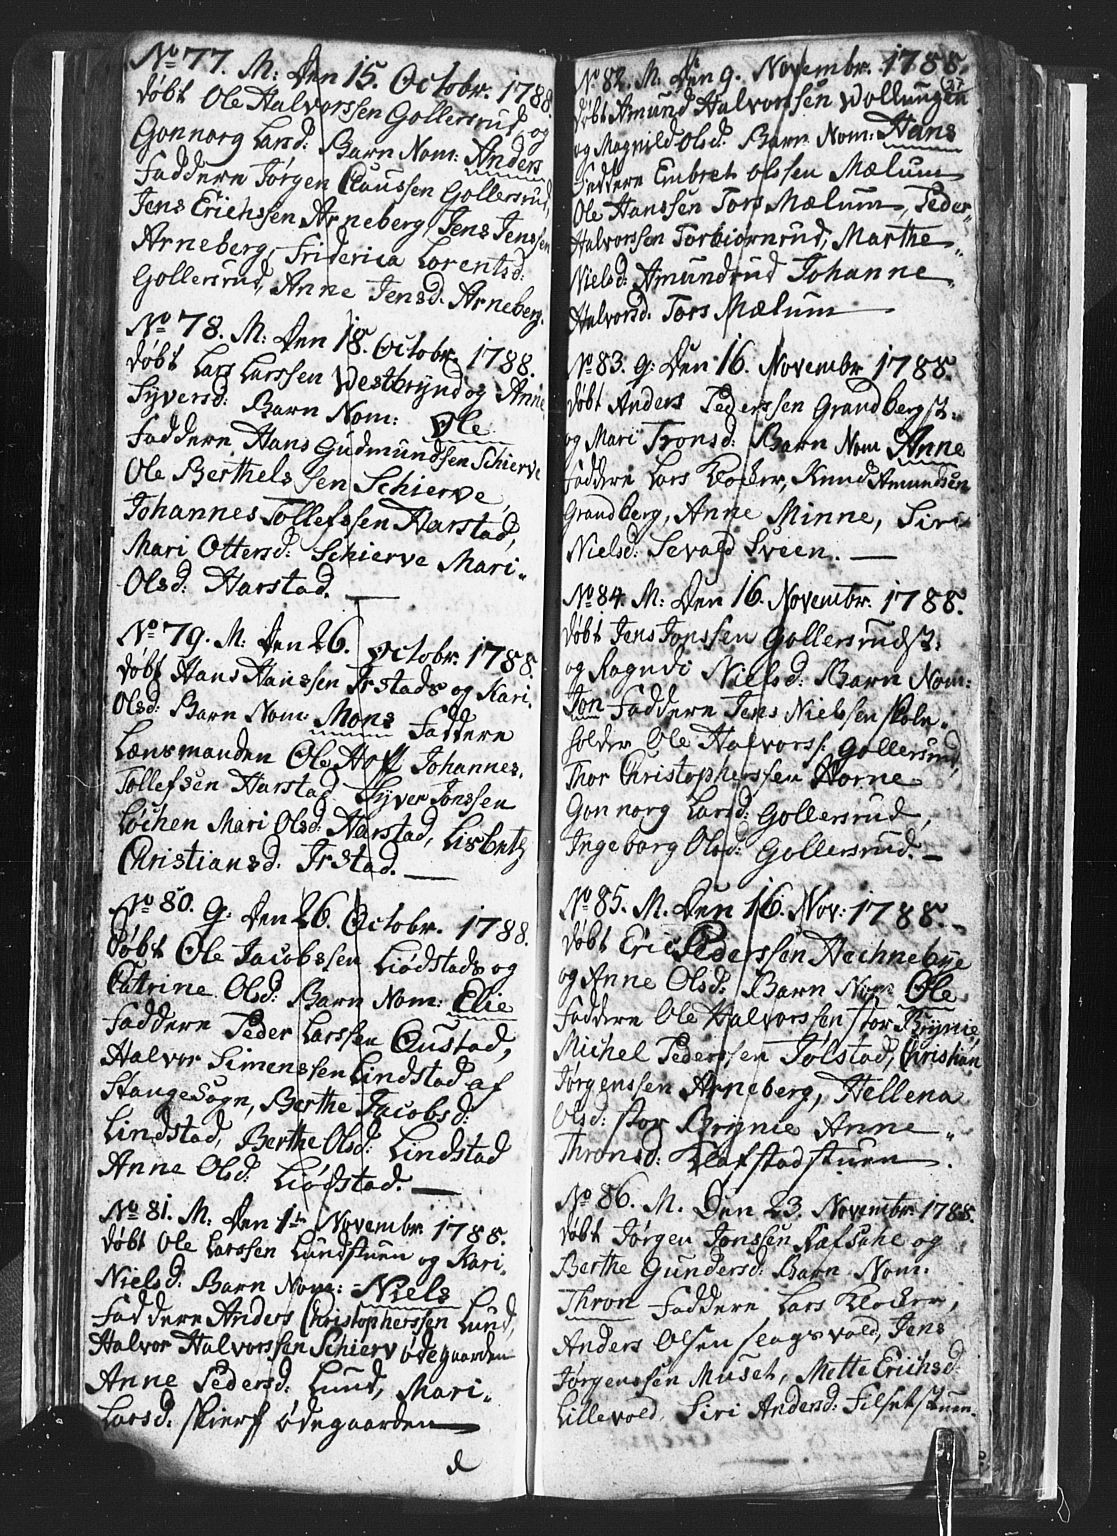 No 77. M: Den 15. Octobr. 1788.
døbt Ole Halvorssen Gollersrud og
Gonnorg Larsd: Barn Nom: Anders
Faddere Jørgen Claussen Gollersrud,
Jens Erichssen Arneberg Jens Jenssen
Arneberg, Friderica Lorentsd:
Gollersrud, Anne Jensd. Arneberg.
No 78. M: Den 18. Octobr. 1788.
døbt Lars Larssen Westbrÿnd og Anne
Syversd: Barn Nom: Ole
Faddere Hans Gudmundsen Schierve
Ole Berthelssen Schierve
Johannes Tollefssen Harstad,
Mari Ottersd: Schierve Mari
Olsd: Harstad.
No 79. M: Den 26. Octobr. 1788.
døbt Hans Hanssen Irstads og Kari
Olsd: Barn Nom: Mons Faddere
Lænsmanden Ole Hoff Johannes
Tollefsen Harstad Syver Jonssen
Løchen Mari Olsd: Harstad, Lisbeth
Christiansd. Irstad.
No 80. g: Den 26. Octobr. 1788.
døbt Ole Jacobssen Liødstads og
Catrine Olsd: Barn Nom: Elie
Faddere Peder Larssen Austad,
Halvor Simenssen Lindstad af
Stange Sogn, Berthe Jacobsd:
Lindstad, Berthe Olsd: Lindstad
Anne Olsd: Liødstad.
No 81. M: Den 1te Novembr. 1788.
døbt Ole Larssen Lundstuen og Kari
Nielsd: Barn Nom: Niels
Faddere Anders Christopherssen Lund,
Halvor Halvorssen Schierv ødegaarden
Anne Pedersd: Lund, Mari
Larsd: Skierf ødegaarden
No 82. M: Den 9. Novembr. 1788.
27
døbt Amund Halvorssen Wollungen
og Magnild Olsd: Barn Nom: Hans
Faddere Embret Olssen Mælum
Ole Hanssen Tors Mælum, Peder
Halvorssen Torbiørnrud, Marthe
Nielsd: Amundrud Johanne
Halvorsd: Tors Mælum
No 83. g: Den 16. Novembr 1788.
døbt Anders Pederssen Grandbergst:
og Mari Tronsd: Barn Nom Anne
Faddere Lars Klocker, Knud Amundsen
Grandberg, Anne Minne, Siri
Nielsd: Sevald Sveen.
No 84. M: Den 16. Novembr. 1788.
døbt Jens Jonssen Gollersrudst:
og Ragndi Nielsd: Barn Nom:
Jon Faddere Jens Nielssen Skole
holder Ole Halvorss: Gollersrud,
Thor Christopherssen Horne
Gonnorg Larsd: Gollersrud,
Ingeborg Olsd: Gollersrud.
No 85. M. Den 16. Nov: 1788.
døbt Eric Pederssen Hechnebye
og Anne Olsd: Barn Nom Ole
Faddere Ole Halvorssen Stor Brÿnie,
Michel Pederssen Jølstad, Christian
Jørgenssen Arneberg, Hellena
Olsd: Stor Brÿnie Anne
Thronsd: Klafstadstuen.
No 86. M. Den 23. Novembr. 1788.
døbt Jørgen Jonssen Kafsahe og
Berthe Gundersd: Barn Nom:
Thron Faddere Lars Klocker,
Anders Olsen Slagsvold, Jens
Jørgenssen Muset, Mette Erichsd:
Lillevold, Siri Andersd: Silsetstuen.